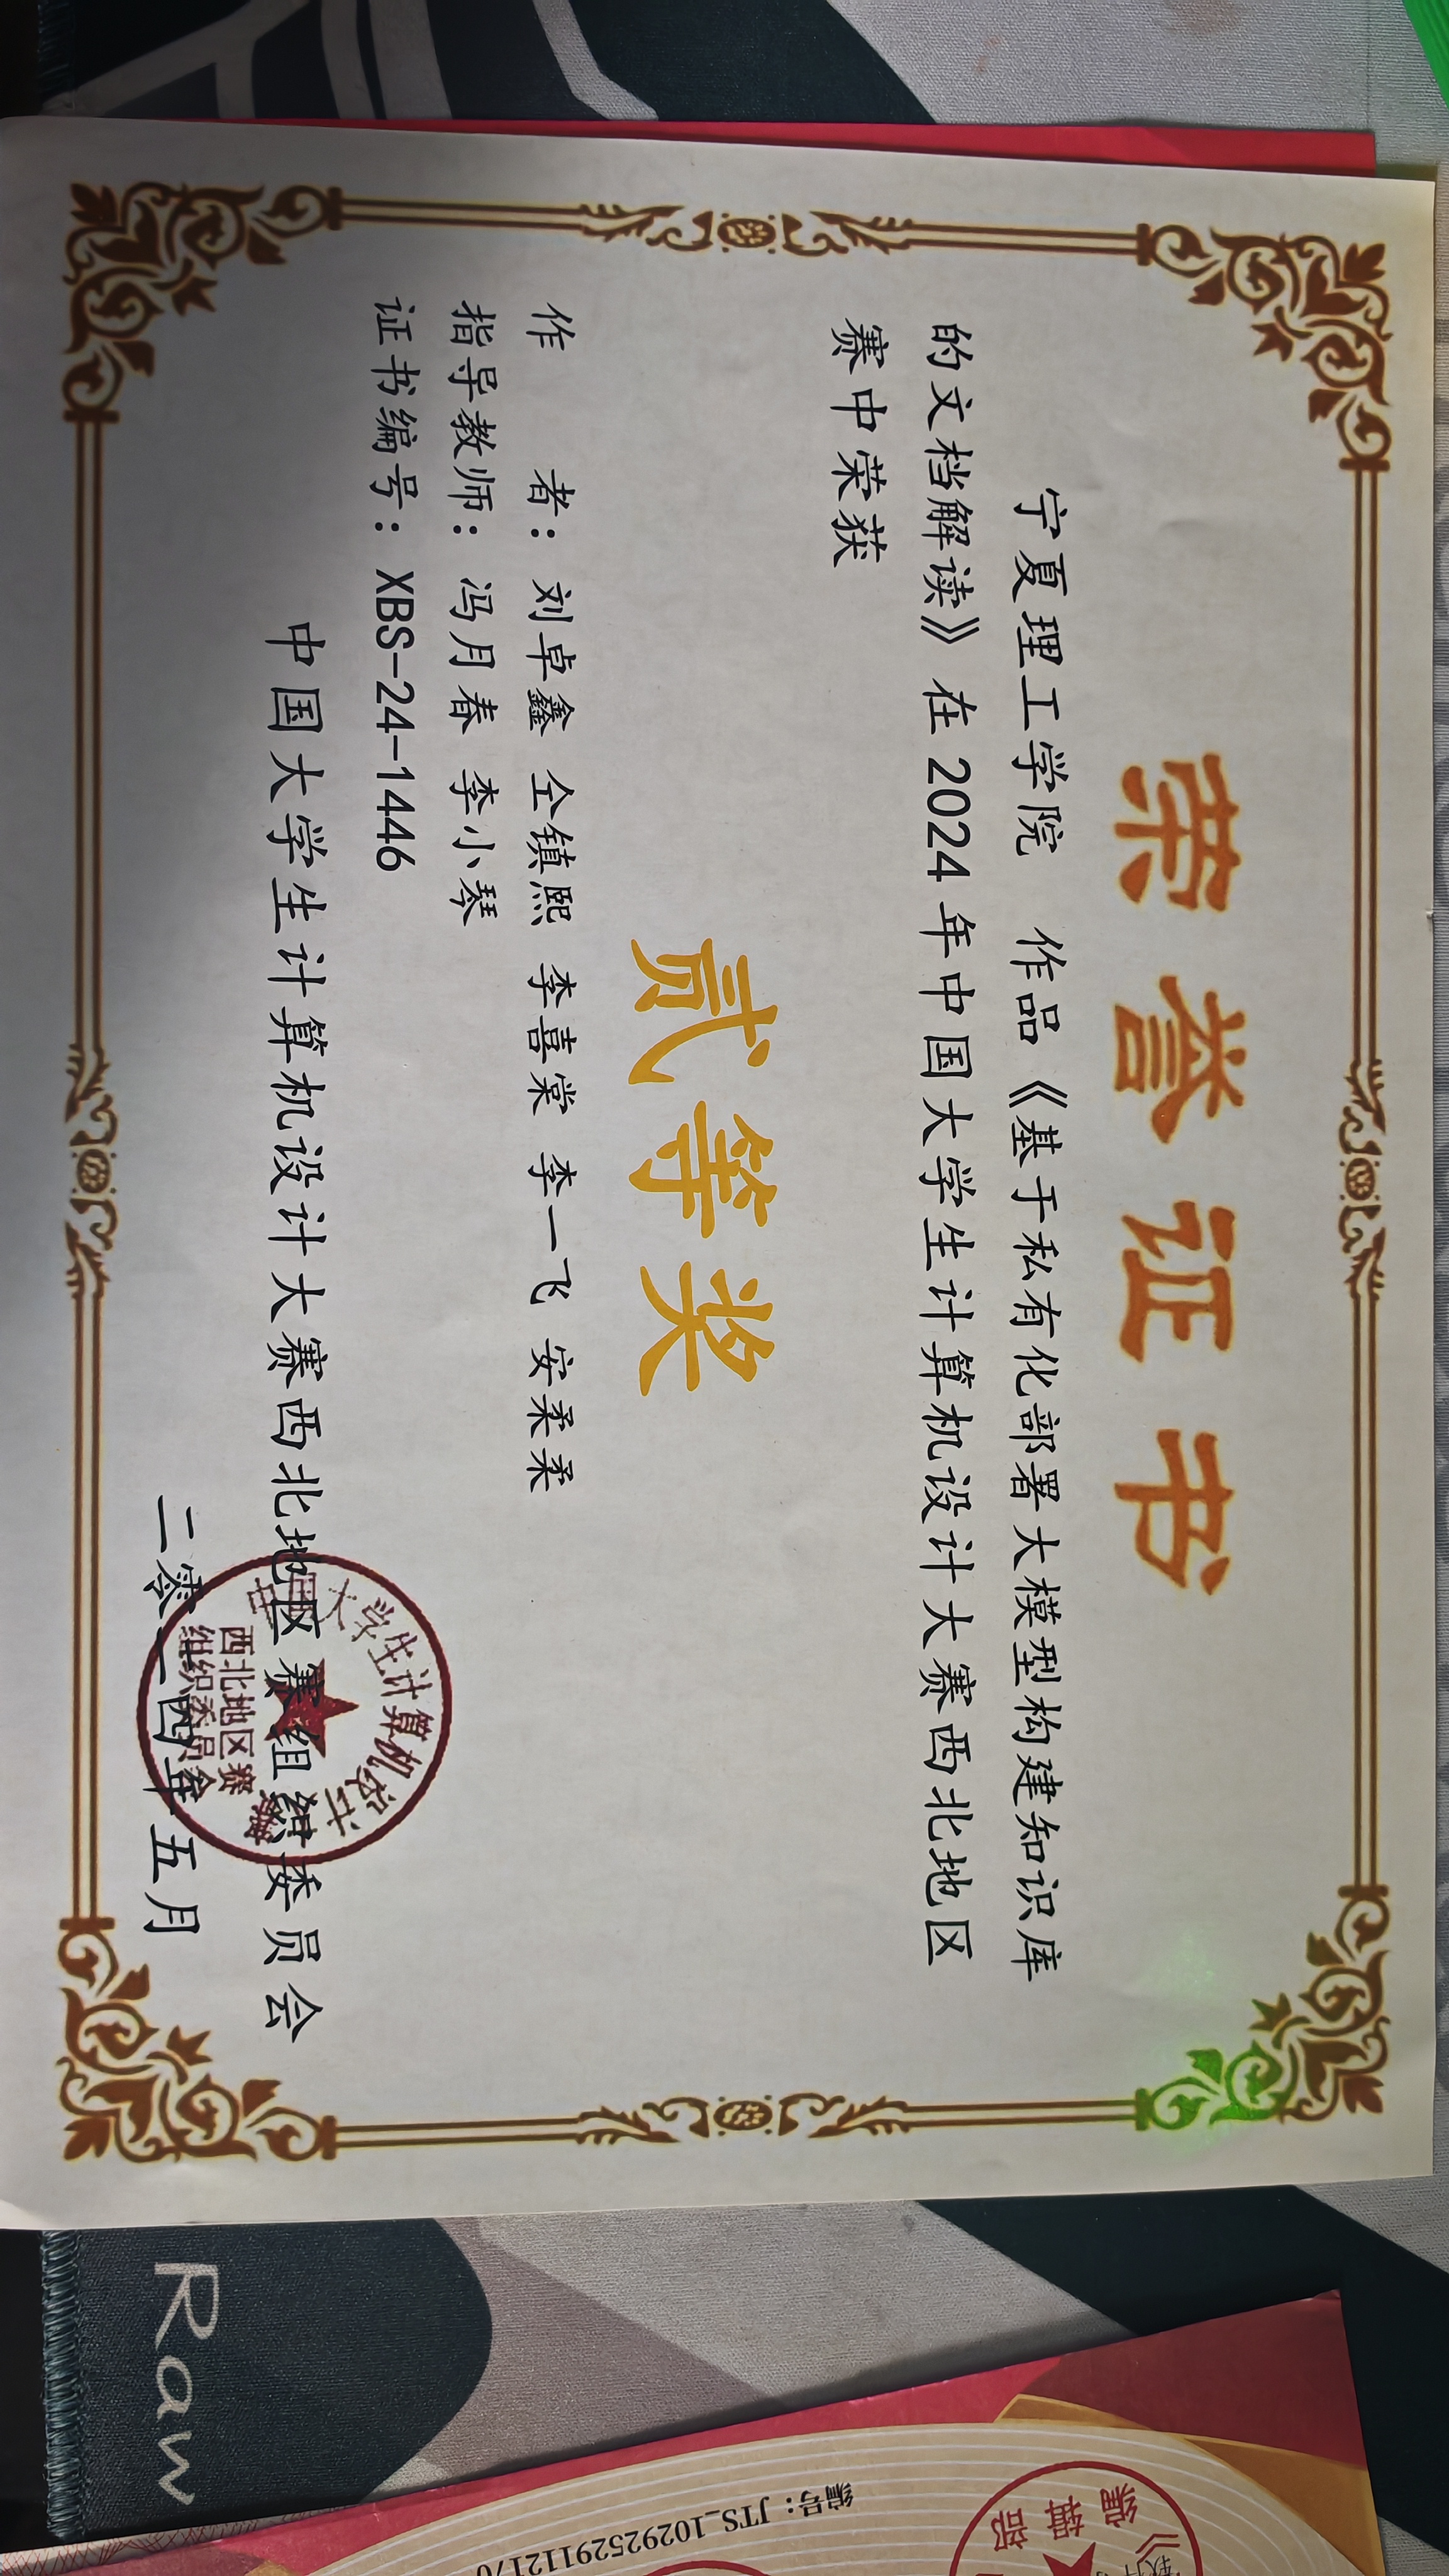 荣誉证书
宁夏理工学院 作品《基于私有化部署大模型构建知识库
的文档解读》在2024年中国大学生计算机设计大赛西北地区
赛中荣获
贰等奖
作 者：刘卓鑫 仝镇熙 李喜棠 李一飞 安柔柔
指导教师：冯月春 李小琴
证书编号：XBS-24-1446
中国大学生计算机设计大赛西北地区赛组织委员会
二零二四年五月
中国大学生计算机设计大赛
西北地区赛
组织委员会
Raw
编号：JTS_1029252911217
《
编辑部